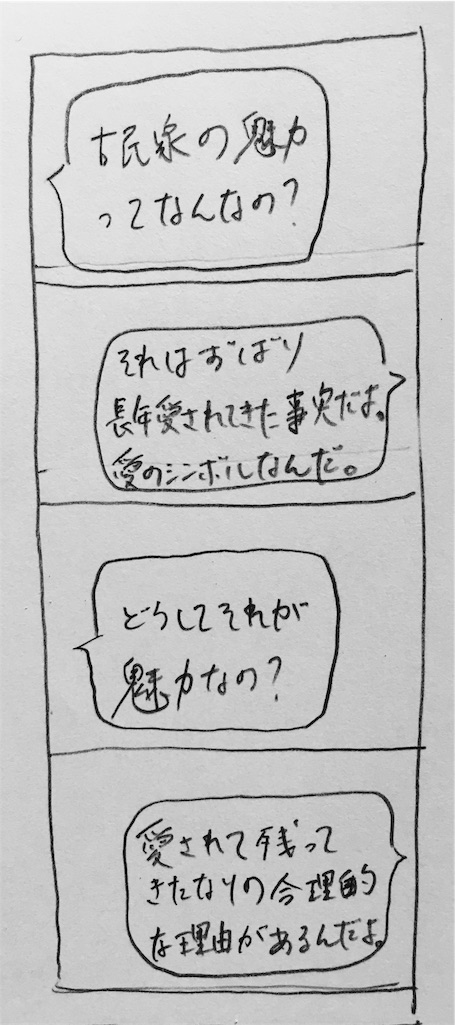 古民家の魅力
ってなんなの?
それはずばり
長年愛されてきた事実だよ。
愛のシンボルなんだ。
どうしてそれが
魅力なの?
愛されて残って
きたなりの合理的
な理由があるんだよ。